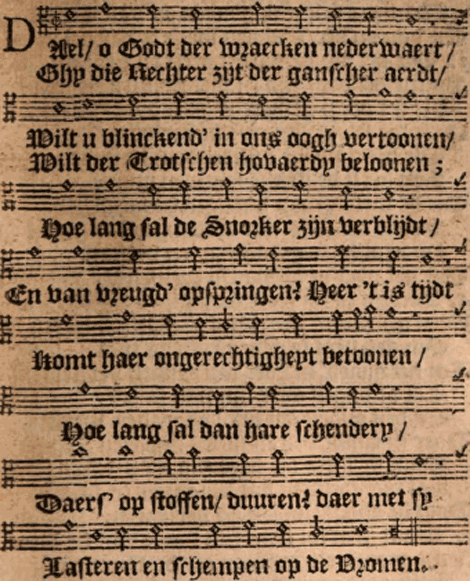 DAel/ o Godt der wraecken nederwaert/
Ghy die Rechter zijt der gantscher aerdt/
Wilt u blinckend' in ons oogh vertoonen/
Wilt der Trotschen hovaerdy beloonen;
Hoe lang sal de Snorker zijn verblijdt/
En van vreugd' opspringen? Heer 't is tijdt
Komt haer ongerechtigheyt betoonen/
Hoe lang sal dan hare schendery/
Daers' op stoffen/ duuren? daer met sy
Lasteren en schempen op de Vromen.